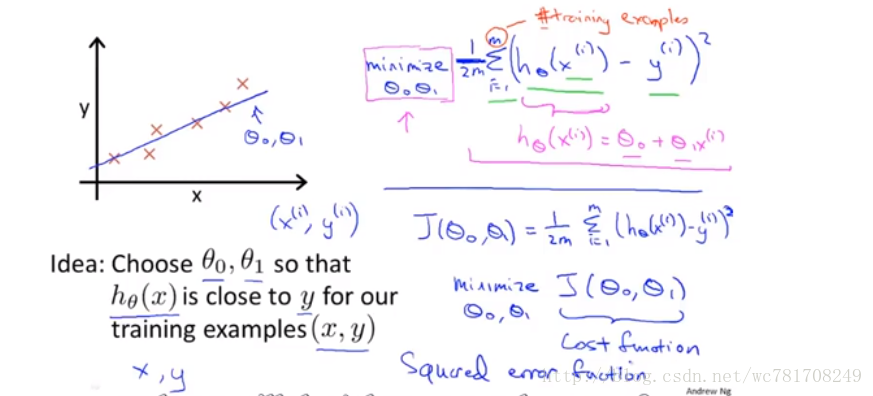 #training examples
minimize
θ₀, θ₁
1/2m Σᵢ₌₁ᵐ (h_θ(x⁽ⁱ⁾) - y⁽ⁱ⁾)²
h_θ(x⁽ⁱ⁾) = θ₀ + θ₁x⁽ⁱ⁾
y
θ₀, θ₁
x
(x⁽ⁱ⁾, y⁽ⁱ⁾)
J(θ₀, θ₁) = 1/2m Σᵢ₌₁ᵐ (h_θ(x⁽ⁱ⁾) - y⁽ⁱ⁾)²
Idea: Choose θ₀, θ₁ so that
h_θ(x) is close to y for our
training examples (x, y)
x, y
minimize J(θ₀, θ₁)
θ₀, θ₁
Cost function
Squared error function
http://blog.csdn.net/wc781708249
Andrew Ng